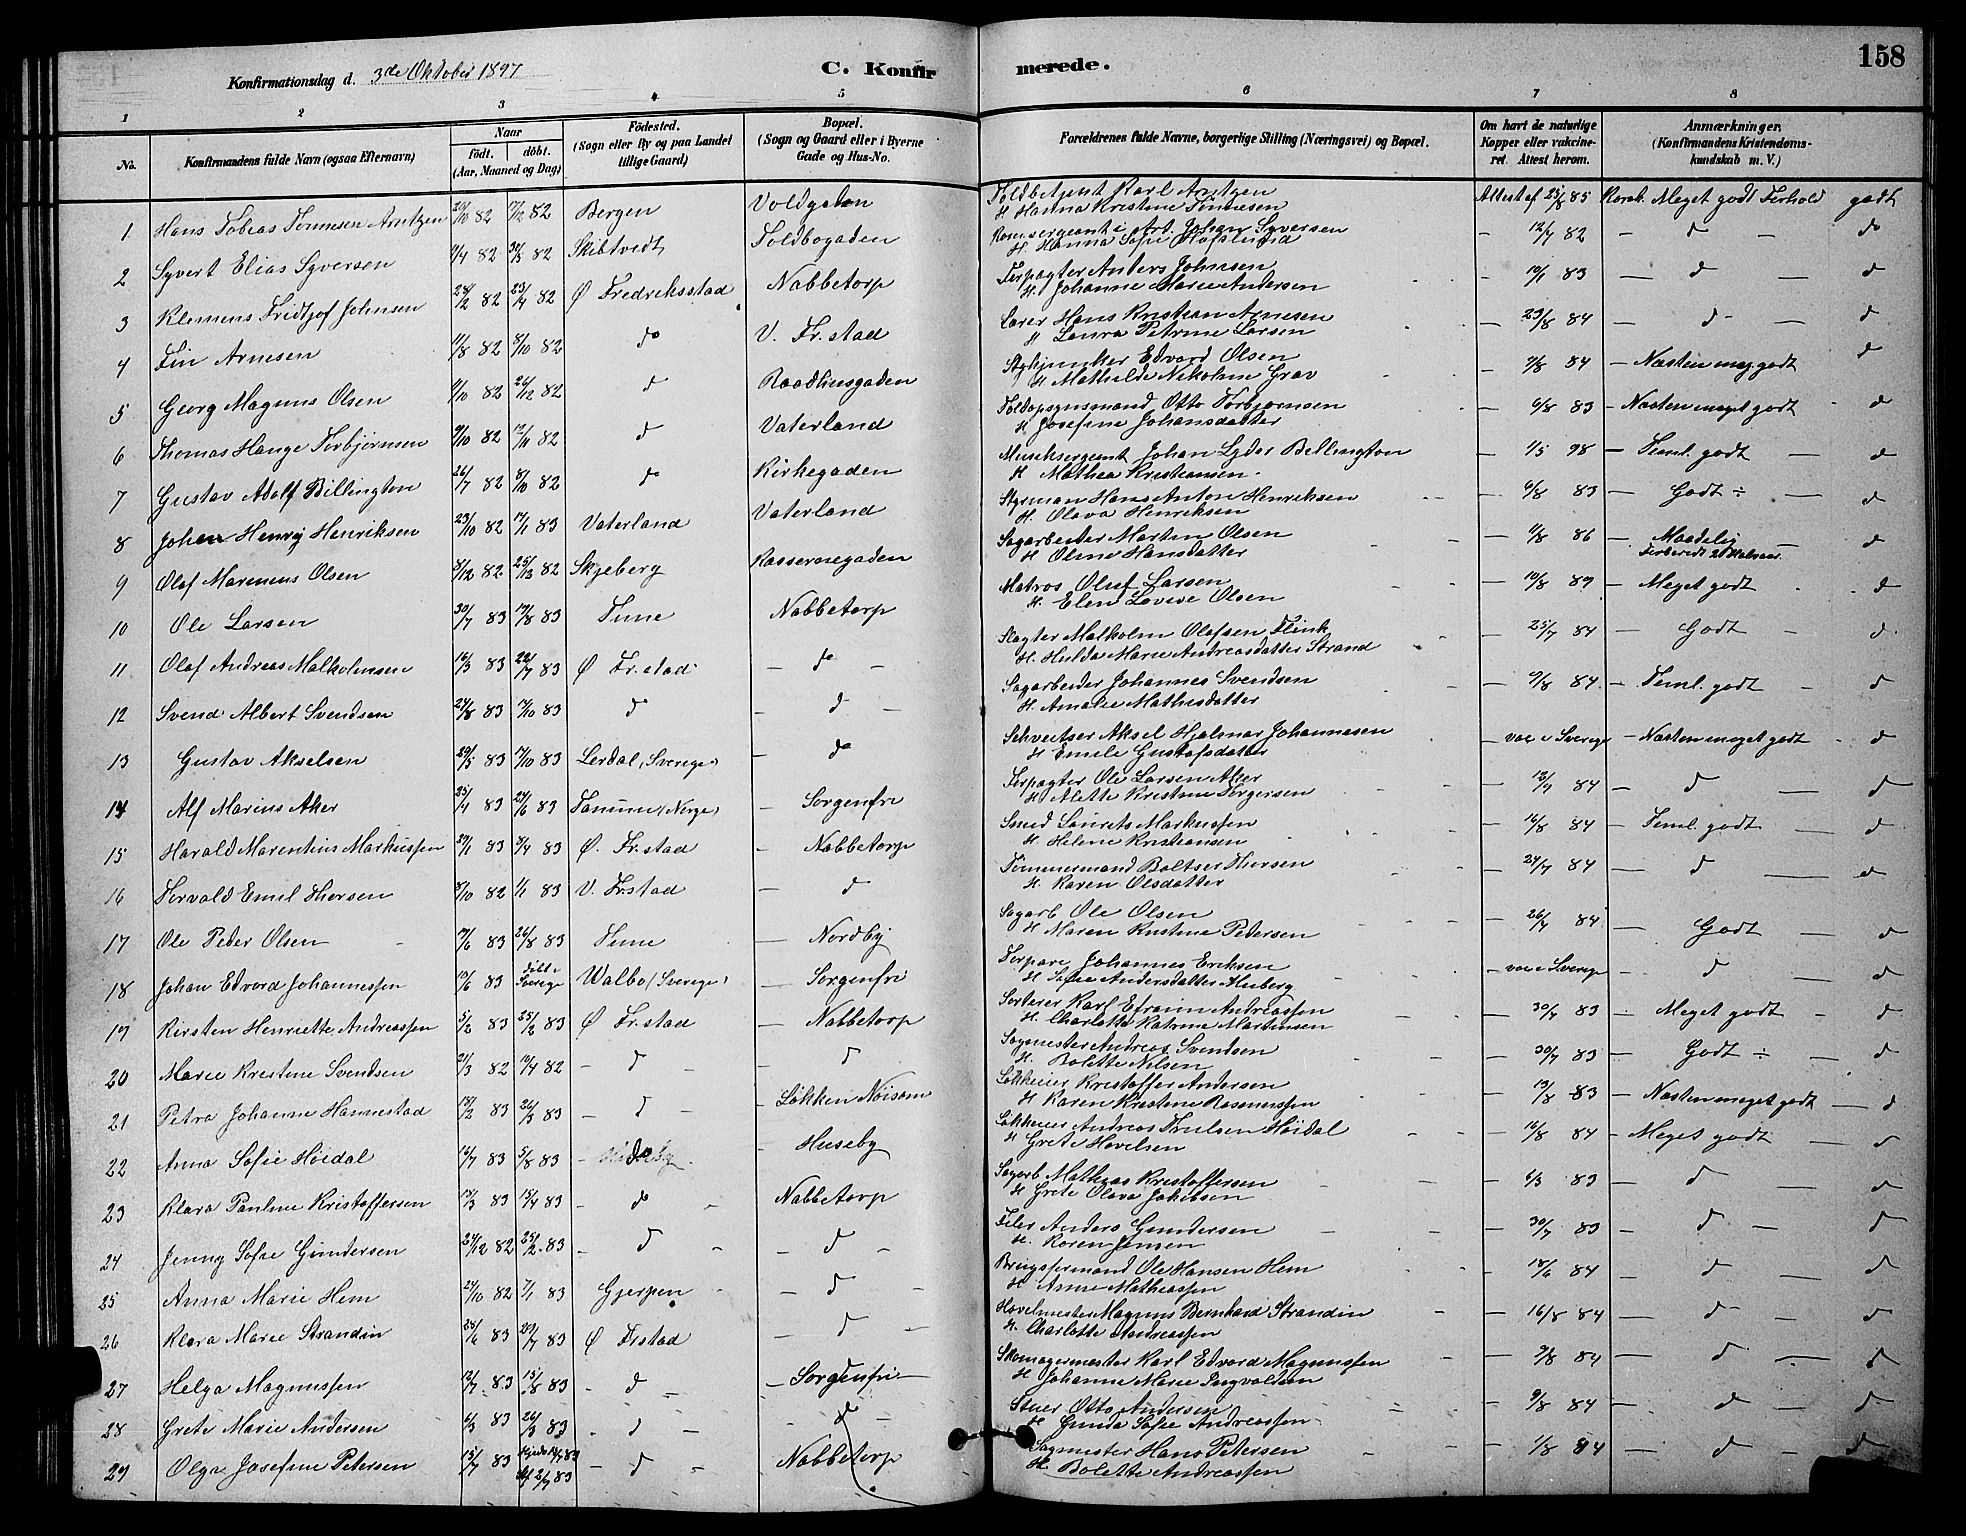 158
Konfirmationsdag d. 3de Oktober 1897
C. Konfirmerede.
1 2 3 4 5 6 7 8
No. Konfirmandens fulde Navn (ogsaa Efternavn) Naar født. døbt. (Aar, Maaned og Dag) Födested. (Sogn eller By og paa Landet tillige Gaard) Bopæl. (Sogn og Gaard eller i Byerne Gade og Hus-No.) Forældrenes fulde Navne, borgerlige Stilling (Næringsvei) og Bopæl. Om havt de naturlige Kopper eller vakcineret. Attest herom. Anmærkninger. (Konfirmandens Kristendomskundskab m. V.)
1 Hans Tobias Tønnesen Arntzen 20/10 82 7/12 82 Bergen Voldgaden Toldbetjent Karl Arntzen Attest af 25/8 85 Meget godt Forhold godt
H. Hanna Kristine Tønnesen
2 Syvert Elias Syversen 9/4 82 82 Skibtvedt Toldbogaden Johan Syversen - 12/7 82 - d - do
H. Hanna Sofie
3 Klemens Fridtjof Johnsen 28/2 82 23/4 82 Ø Fredriksstad Nabbetorp Forpagter Anders Johnsen - 10/1 83 - d - d
H. Johanne Marie Andersen
4 Fin Arnesen 11/8 82 8/10 82 do V. Fr.stad Hans Kristian Arnesen - 29/8 84 - d - d
H Laura Petrine Larsen
5 Georg Magnus Olsen 4/10 82 26/12 82 d Raadhusgaden Edvard Olsen - 9/8 84 - Næsten meg. godt d
H Mathilde Nikoline Grav
6 Thomas Hauge Torbjørnsen 9/10 82 12/11 82 d Vaterland Toldopsynsmand Otto Torbjørnsen - 6/8 83 - Næsten meget godt - d
H Josefine Johansdatter
7 Gustav Adolf Billington 26/7 82 8/10 82 do Kirkegaden Musiksergeant Johan Lyder Bellington - 1/5 98 - Teml. godt - d
H Mathea Kristiansen
8 Johan Henry Henriksen 23/10 82 14/1 83 Vaterland Vaterland Styrman Hans Anton Henriksen - 6/8 83 - Godt ÷ - d
H. Olava Henriksen
9 Olaf Marenius Olsen 8/12 82 25/12 82 Skjeberg Kassernegaden Sagarbeider Marten Olsen - 11/8 86 - Maadelig - d
H Oline Hansdatter
10 Ole Larsen 30/7 83 19/8 83 Tune Nabbetorp Matros Oluf Larsen - 10/8 89 - Meget godt d
H. Elen Lovise Olsen
11 Olaf Andreas Malkolmsen 16/3 83 22/7 83 Ø Fr.stad - do - Slagter Malkolm Olafsen Flink - 25/7 84 - Godt - d
H. Hulda Marie Andreasdatter Strand
12 Svend Albert Svendsen 24/8 83 14/10 83 d - d - Sagarbeider Johannes Svendsen - 9/8 84 - Teml. godt - d
H. Amalie Mathisdatter
13 Gustav Akselsen 29/5 83 17/10 83 Lerdal (Sverige) - do Schveitser Aksel Hjalmar Johannesen - vac i Sverige - Næsten meget godt - d
H Emile Gustafsdatter
14 Alf Marius Aker 25/4 83 24/6 83 (Norge) - Sorgenfri Forpagter Ole Larsen Aker - 12/7 84 - d - d
H Alette Kristine Torgersen
15 Harald Marentius Markussen 29/1 83 8/4 83 Ø. Fr.stad - Nabbetorp Smed Laurits Markussen - 16/8 84 - Teml. godt - d
H. Helene Kristiansen
16 Torvald Emil Thorsen 8/10 82 1/1 83 V. Fr.stad - d Tømmermand Baltser Thorsen - 24/7 84 - d - d
H. Karen Olsdatter
17 Ole Peder Olsen 7/6 83 26/8 83 Tune - Nordby Sagarb Ole Olsen - 26/7 84 - Godt - d
H Maren Kristine Pedersen
18 Johan Edvard Johannessen 12/6 83 Døbt i Sverige Walbo (Sverige) - Sorgenfri Johannes Eriksen - vac i Sverige - d - d
H Sofie Andersdatter
19 Kirsten Henriette Andreassen 5/2 83 25/2 83 Ø Fr.stad - Nabbetorp Sorterer Karl Efraim Andreassen - 30/7 83 - Meget godt - d
H. Charlotte Katrine Martinsen
20 Marie Kristine Svendsen 21/3 82 10/4 82 - d - d Sagmester Andreas Svendsen - 30/7 83 - Godt ÷ - d
H. Bolette Nilsen
21 Petra Johanne Hannestad 13/2 83 26/3 83 - d - Løkken Nøisom Kristoffer Andersen - 13/8 83 - Næsten meget godt - d
H Karen Kristine Rasmussen
22 Anna Sofie Høidal 12/7 83 5/8 83 - do - Huseby Andreas Truelsen Høidal - 16/8 84 - Meget godt - d
H Grete Hovelsen
23 Klara Pauline Kristoffersen 13/3 83 15/4 83 - do - Nabbetorp Sagarb Mathias Kristoffersen - 6/3 83 - d - d
H Grete Olava Jakobsen
24 Jenny Sofie Gundersen 24/12 82 25/2 83 - d - - d - Filer Anders Gundersen - 30/7 83 - d - d
H. Karen Jensen
25 Anna Marie Hem 24/10 82 7/1 83 Gjerpen - d - Ole Hansen Hem - 18/6 84 - d - d
H Anne Mathiassen
26 Klara Marie Strandin 28/6 83 29/7 83 Ø Fr.stad - d - Høvelmester Magnus Bernhard Strandin - 16/8 84 - d - d
H. Charlotte Andreassen
27 Helga Magnussen 12/7 83 15/8 83 - d - - Sorgenfri - Skomagermester Karl Edvard Magnussen - 2/8 84 - d - d
H Johanne Marie Ingvaldsen
28 Grete Marie Andersen 6/3 83 26/3 83 - d - - d - Stuer Otto Andersen - 9/8 84 - d - d
H Gunda Sofie Andreassen
29 Olga Josefine Petersen 15/7 83 83 - d - Nabbetorp Sagmester Hans Petersen - 1/8 84 - d - d
H. Bolette Andreassen